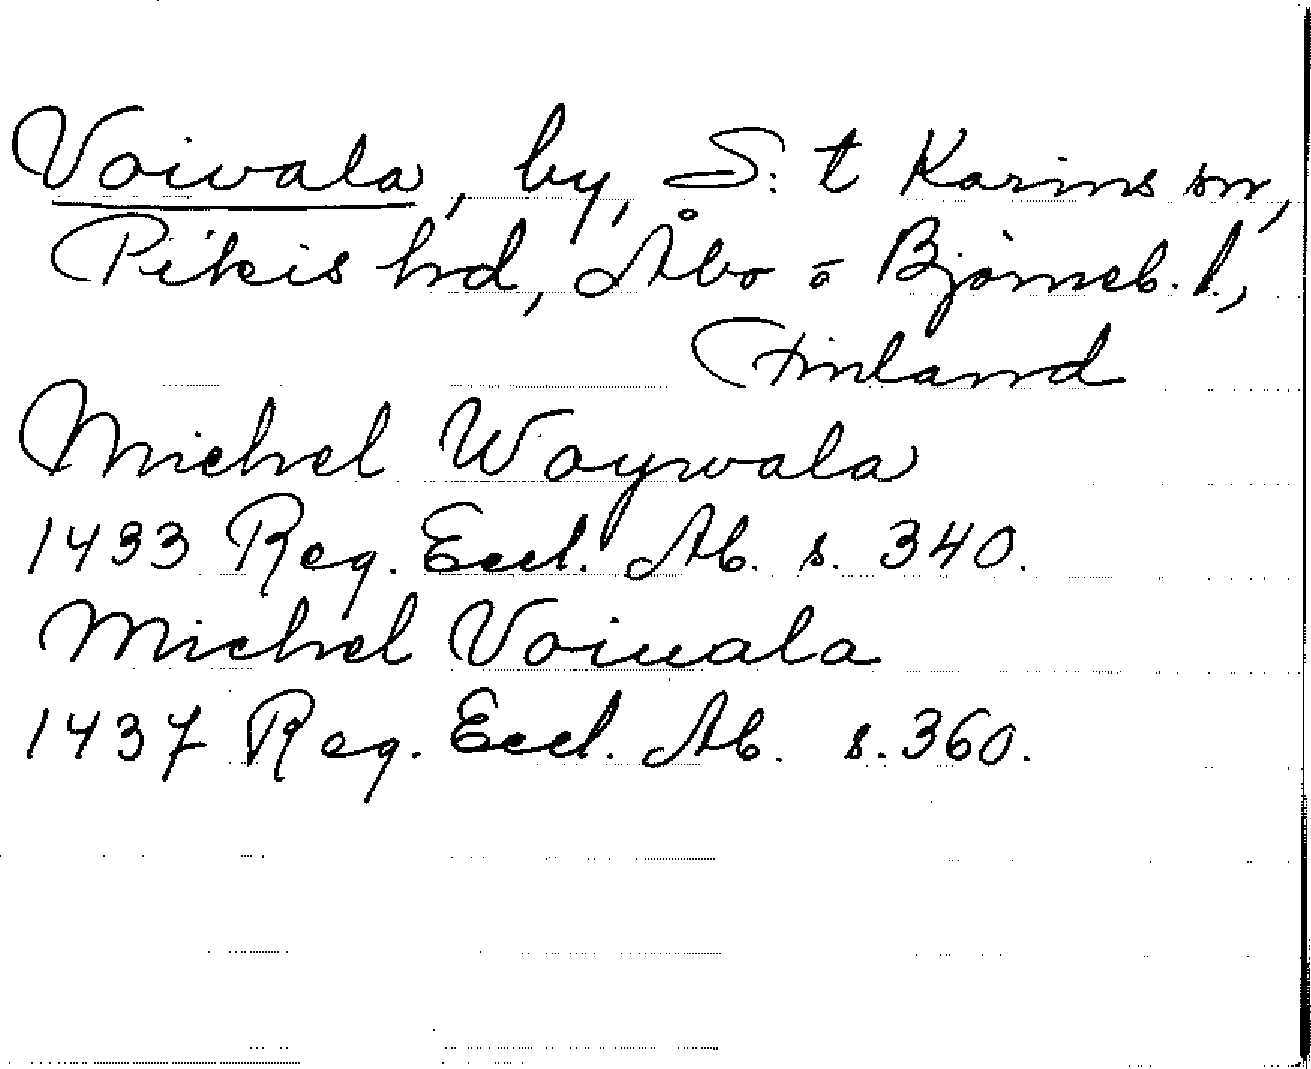 Voivala, by, S:t Karins sn,
Pikis hrd, Åbo o Björneb. l.,
Finland
Michel Woywala
1433 Reg. Eccl. Ab. s. 340.
Michel Voiuala
1437 Reg. Eccl. Ab. s. 360.